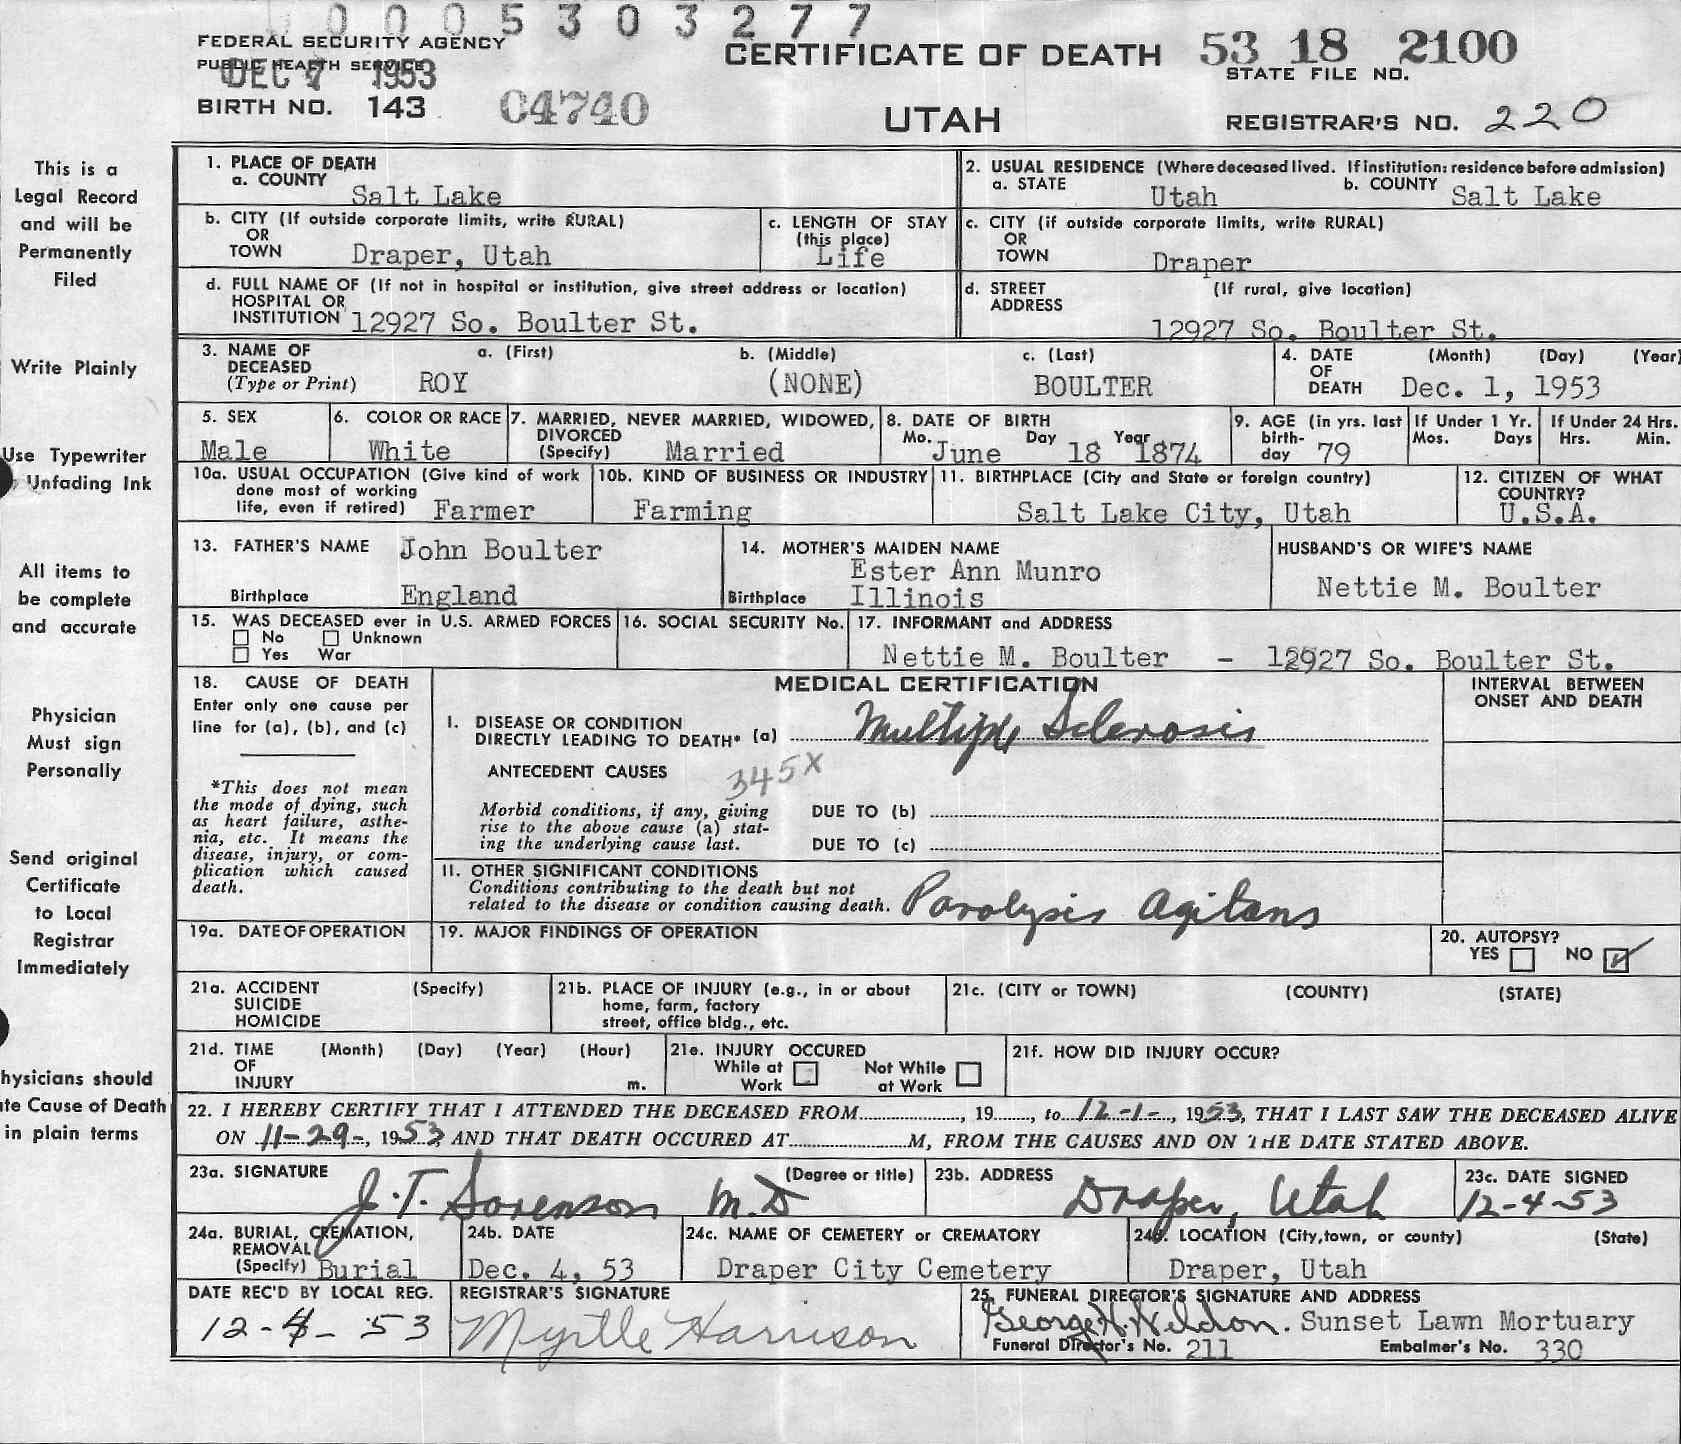 0005303277
FEDERAL SECURITY AGENCY
PUBLIC HEALTH SERVICE
DEC 7 1953
CERTIFICATE OF DEATH
53 18 2100
STATE FILE NO.
BIRTH NO. 143
C4740
UTAH
REGISTRAR'S NO. 220
This is a
Legal Record
and will be
Permanently
Filed
Write Plainly
Use Typewriter
Unfading Ink
All items to
be complete
and accurate
Physician
Must sign
Personally
Send original
Certificate
to Local
Registrar
Immediately
hysicians should
te Cause of Death
in plain terms
1. PLACE OF DEATH
a. COUNTY Salt Lake
2. USUAL RESIDENCE (Where deceased lived. If institution: residence before admission)
a. STATE Utah b. COUNTY Salt Lake
b. CITY (If outside corporate limits, write RURAL)
OR
TOWN Draper, Utah
c. LENGTH OF STAY
(this place)
Life
c. CITY (if outside corporate limits, write RURAL)
OR
TOWN Draper
d. FULL NAME OF (If not in hospital or institution, give street address or location)
HOSPITAL OR
INSTITUTION 12927 So. Boulter St.
d. STREET (If rural, give location)
ADDRESS
12927 So. Boulter St.
3. NAME OF a. (First) b. (Middle) c. (Last)
DECEASED
(Type or Print) ROY (NONE) BOULTER
4. DATE (Month) (Day) (Year)
OF
DEATH Dec. 1, 1953
5. SEX
Male
6. COLOR OR RACE
White
7. MARRIED, NEVER MARRIED, WIDOWED,
DIVORCED
(Specify) Married
8. DATE OF BIRTH
Mo. Day Year
June 18 1874
9. AGE (in yrs. last
birth-
day 79
If Under 1 Yr.
Mos. Days
If Under 24 Hrs.
Hrs. Min.
10a. USUAL OCCUPATION (Give kind of work
done most of working
life, even if retired) Farmer
10b. KIND OF BUSINESS OR INDUSTRY
Farming
11. BIRTHPLACE (City and State or foreign country)
Salt Lake City, Utah
12. CITIZEN OF WHAT
COUNTRY?
U.S.A.
13. FATHER'S NAME John Boulter
Birthplace England
14. MOTHER'S MAIDEN NAME
Ester Ann Munro
Birthplace Illinois
HUSBAND'S OR WIFE'S NAME
Nettie M. Boulter
15. WAS DECEASED ever in U.S. ARMED FORCES
No Unknown
Yes War
16. SOCIAL SECURITY No.
17. INFORMANT and ADDRESS
Nettie M. Boulter - 12927 So. Boulter St.
18. CAUSE OF DEATH
Enter only one cause per
line for (a), (b), and (c)
*This does not mean
the mode of dying, such
as heart failure, asthe-
nia, etc. It means the
disease, injury, or com-
plication which caused
death.
MEDICAL CERTIFICATION
INTERVAL BETWEEN
ONSET AND DEATH
I. DISEASE OR CONDITION
DIRECTLY LEADING TO DEATH* (a) Multiple Sclerosis
ANTECEDENT CAUSES 345X
Morbid conditions, if any, giving
rise to the above cause (a) stat-
ing the underlying cause last.
DUE TO (b)
DUE TO (c)
II. OTHER SIGNIFICANT CONDITIONS
Conditions contributing to the death but not
related to the disease or condition causing death. Paralysis Agitans
19a. DATE OF OPERATION
19. MAJOR FINDINGS OF OPERATION
20. AUTOPSY?
YES NO
21a. ACCIDENT (Specify)
SUICIDE
HOMICIDE
21b. PLACE OF INJURY (e.g., in or about
home, farm, factory
street, office bldg., etc.
21c. (CITY or TOWN) (COUNTY) (STATE)
21d. TIME (Month) (Day) (Year) (Hour)
OF
INJURY m.
21e. INJURY OCCURED
While at Work
Not While at Work
21f. HOW DID INJURY OCCUR?
22. I HEREBY CERTIFY THAT I ATTENDED THE DECEASED FROM............, 19......, to 12-1-, 1953, THAT I LAST SAW THE DECEASED ALIVE
ON 11-29-, 1953, AND THAT DEATH OCCURED AT............M, FROM THE CAUSES AND ON THE DATE STATED ABOVE.
23a. SIGNATURE (Degree or title)
J. T. Sorenson M.D
23b. ADDRESS
Draper, Utah
23c. DATE SIGNED
12-4-53
24a. BURIAL, CREMATION,
REMOVAL
(Specify) Burial
24b. DATE
Dec. 4, 53
24c. NAME OF CEMETERY or CREMATORY
Draper City Cemetery
24d. LOCATION (City, town, or county) (State)
Draper, Utah
DATE REC'D BY LOCAL REG.
12-4-53
REGISTRAR'S SIGNATURE
Myrtle Harrison
25. FUNERAL DIRECTOR'S SIGNATURE AND ADDRESS
George H. Weldon. Sunset Lawn Mortuary
Funeral Director's No. 211 Embalmer's No. 330